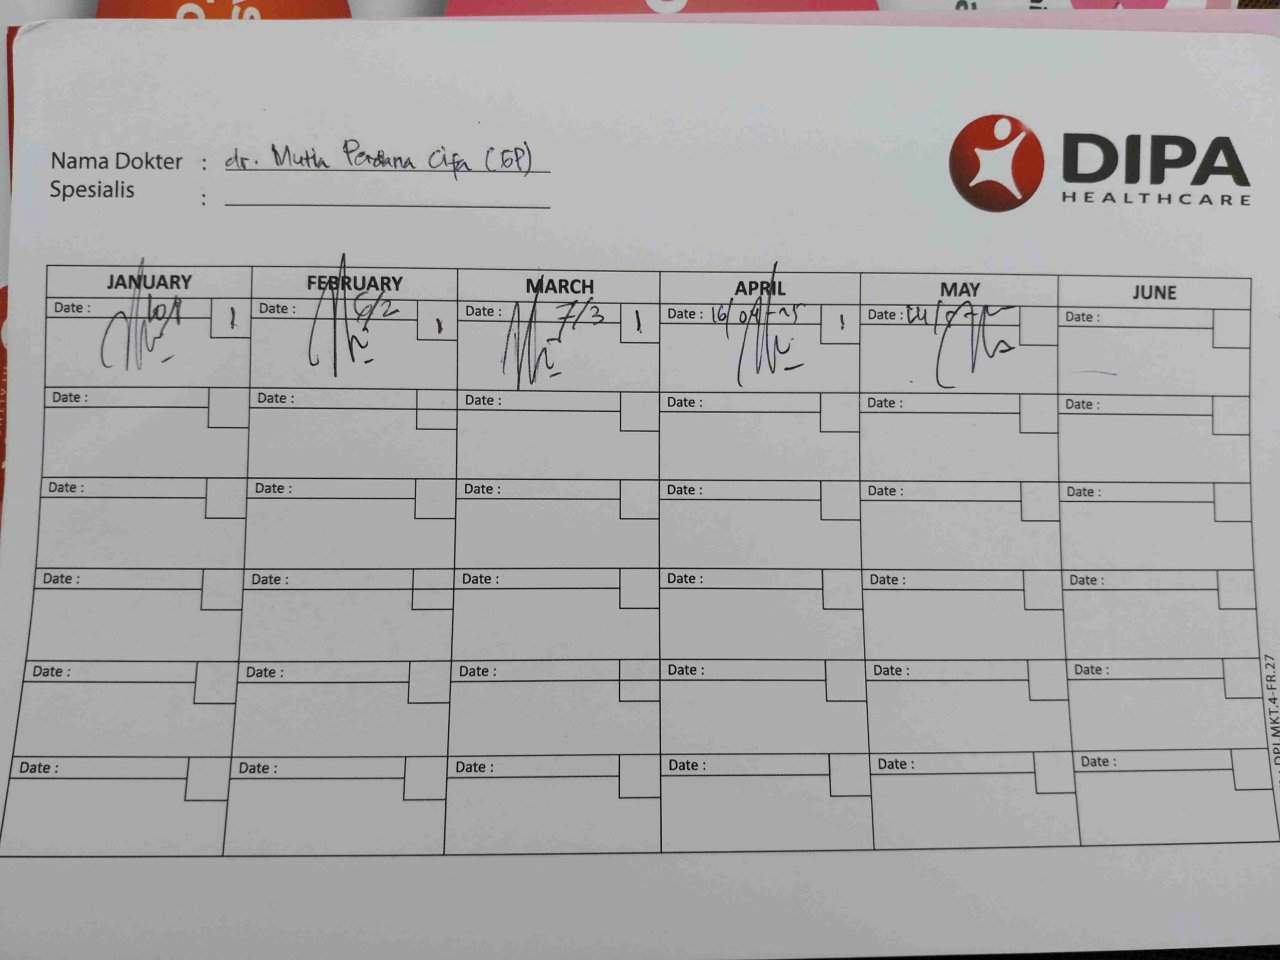 Nama Dokter : dr. Mutia Perdana Cifa (GP)
Spesialis :
DIPA
HEALTHCARE
JANUARY FEBRUARY MARCH APRIL MAY JUNE
Date : 1 Date : 6/2 1 Date : 7/3 1 Date : 16/04-25 1 Date : Date :
Date : Date : Date : Date : Date : Date :
Date : Date : Date : Date : Date : Date :
Date : Date : Date : Date : Date : Date :
Date : Date : Date : Date : Date : Date :
Date : Date : Date : Date : Date : Date :
DPI.MKT.4-FR.27